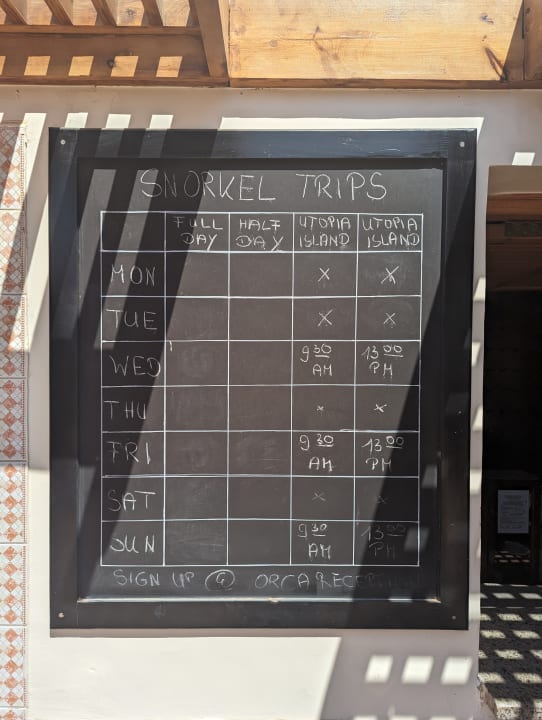 SNORKEL TRIPS
FULL DAY HALF DAY UTOPIA ISLAND UTOPIA ISLAND
MON X X
TUE X X
WED 9 30 AM 13 00 PM
THU x x
FRI 9 30 AM 13 00 PM
SAT x x
SUN 9 30 AM 13 00 PM
SIGN UP @ ORCA